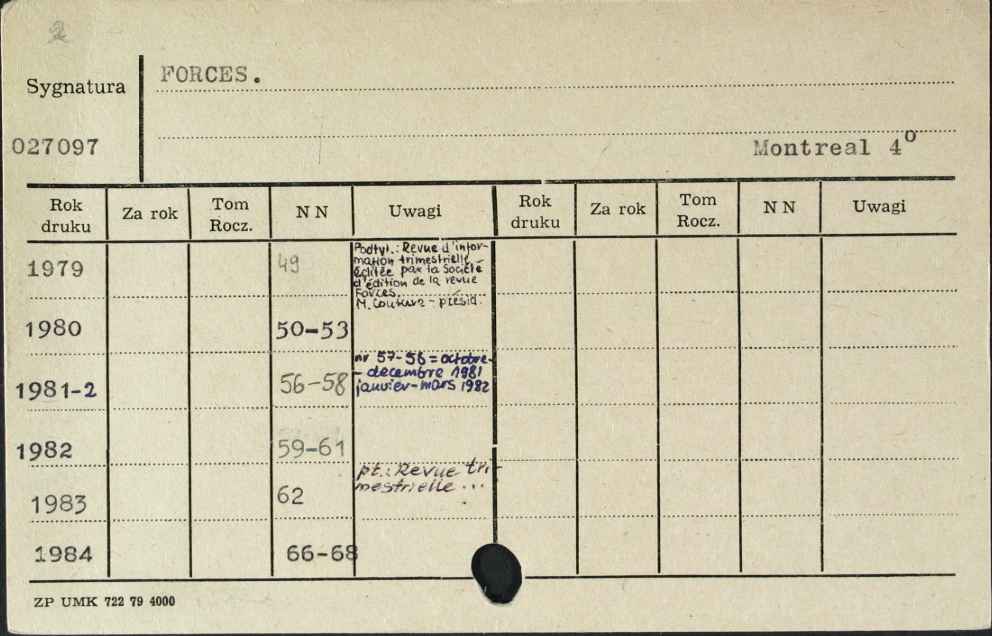 2
FORCES.
Sygnatura
027097
Montreal 4º
Rok druku Za rok Tom Rocz. N N Uwagi Rok druku Za rok Tom Rocz. N N Uwagi
1979 49
Podtyt.: Revue d'infor-
mation trimestrielle
éditée par la Société
d'édition de la revue
Forces.
M. Couture - présid.
1980 50-53
nr 57-58 = octobre-
- décembre 1981
janvier-mars 1982
1981-2 56-58
1982 59-61
pt.: Revue tri-
mestrielle...
1983 62
1984 66-68
ZP UMK 722 79 4000